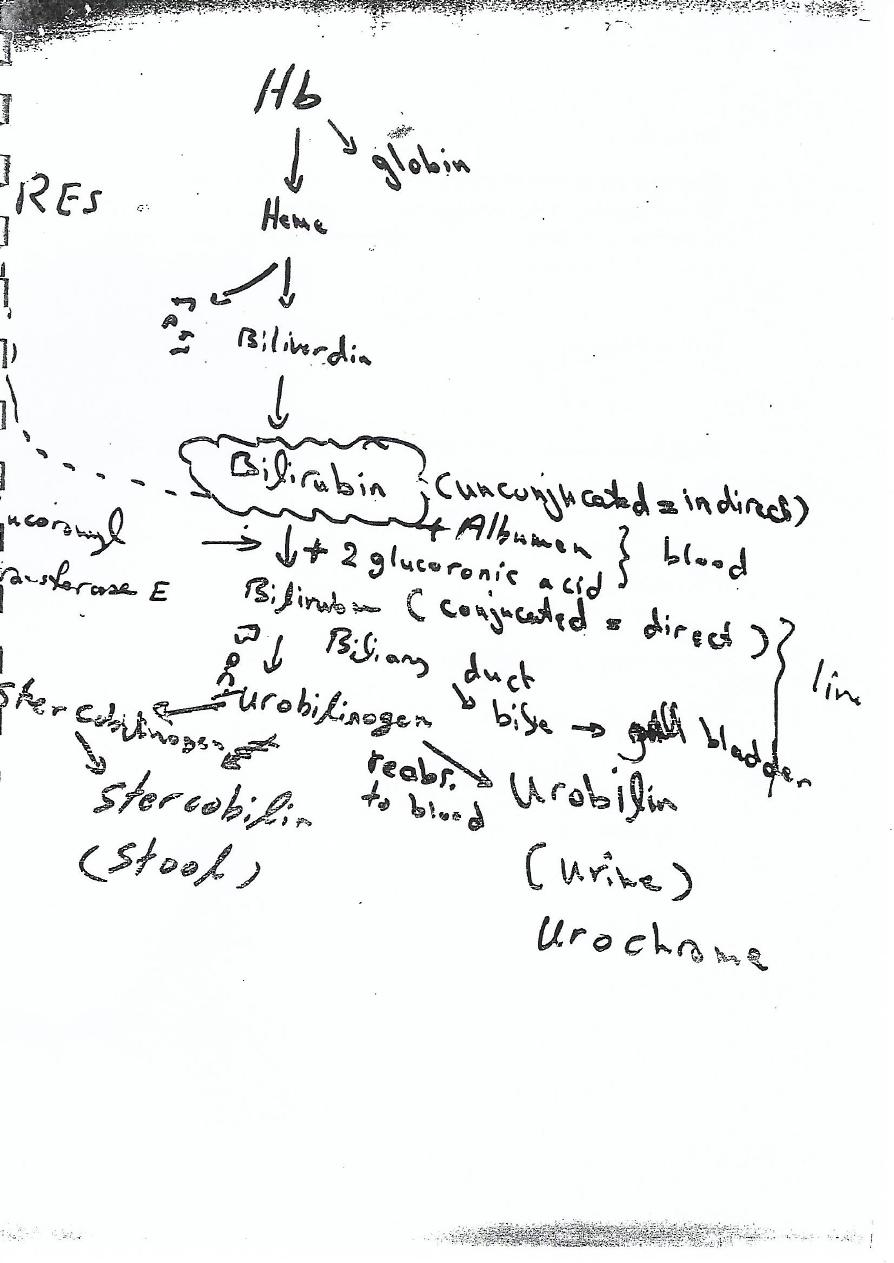 Hb
globin
RES
Heme
Biliverdin
Bilirubin (unconjucated = indirect)
+ Albumen } blood
+ 2 glucoronic acid
ucoronyl
ransferase E
Bilirubin (conjucated = direct)
Biliary duct
Urobilinogen
bile → gall bladder
Stercobilinogen
reabs.
to blood
Urobilin
Stercobilin
(Stool)
(Urine)
Urochrome